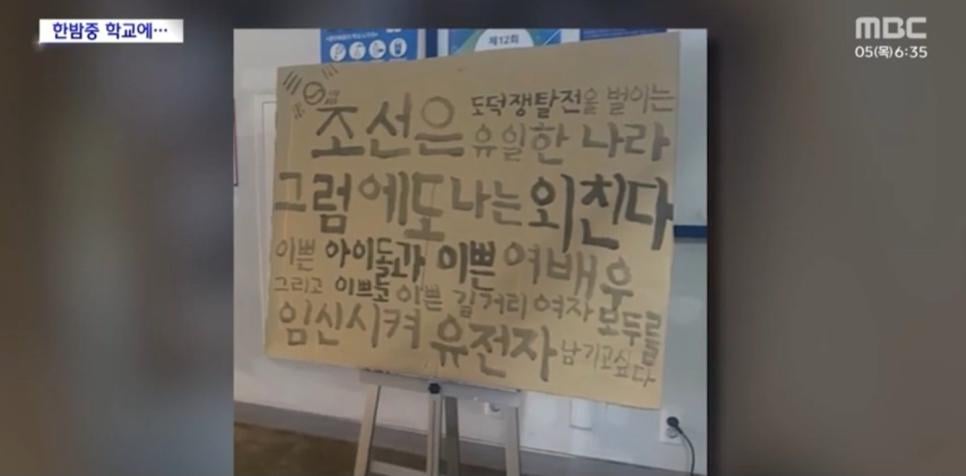 한밤중 학교에…
MBC
05(목)6:35
제12회
조선은 도덕쟁탈전을 벌이는
유일한 나라
그럼에도 나는 외친다
이쁜 아이돌과 이쁜 여배우
그리고 이쁘돌 이쁜 길거리 여자 모두를
임신시켜 유전자 남기고싶다